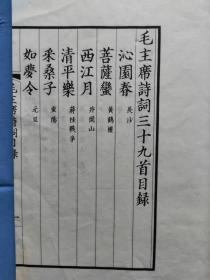 毛主席詩詞三十九首目録
沁園春 長沙
菩薩蠻 黄鶴樓
西江月 井岡山
清平樂 蔣桂戰爭
采桑子 重陽
如夢令 元旦
毛主席詩詞目録 一